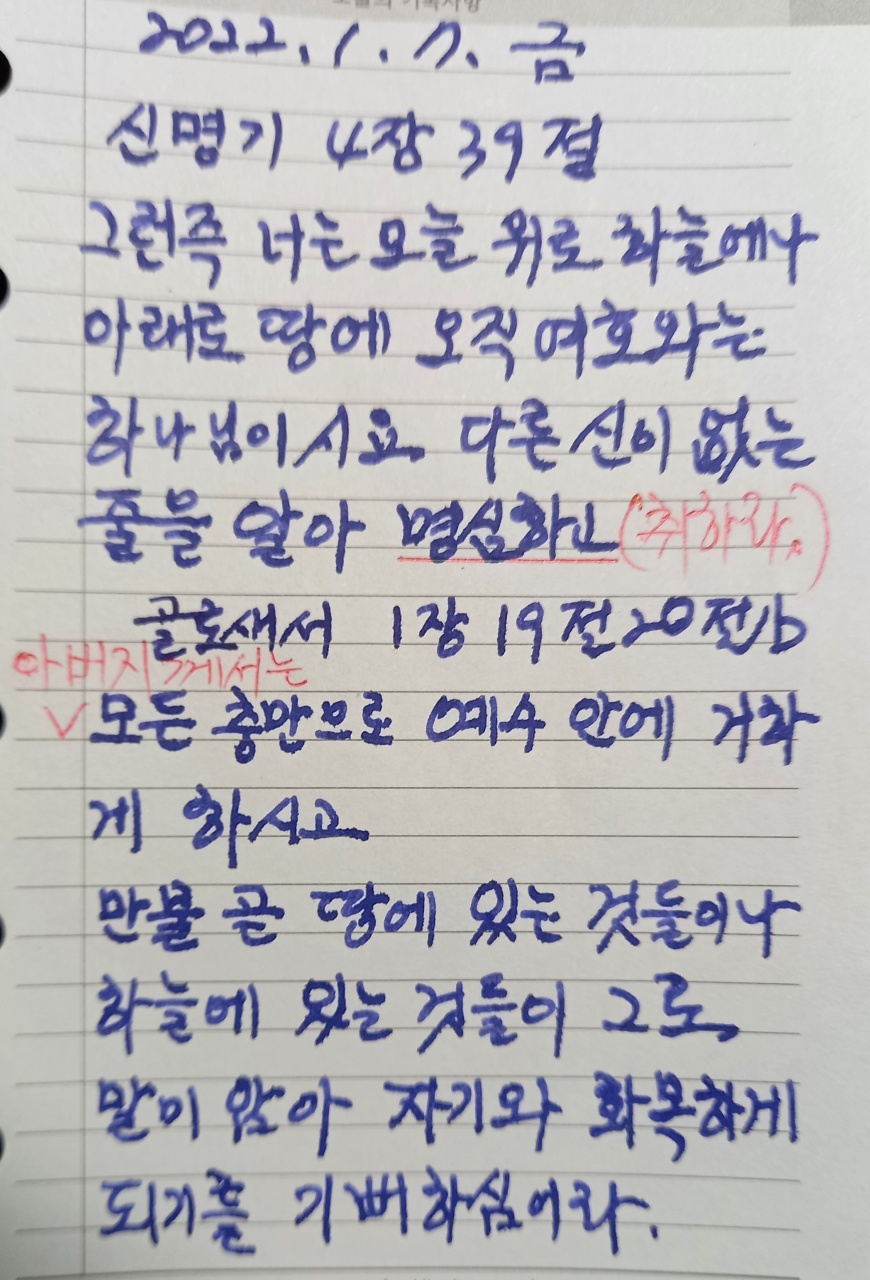 2022. 1. 7. 금
신명기 4장 39절
그런즉 너는 오늘 위로 하늘에나
아래로 땅에 오직 여호와는
하나님이시요 다른 신이 없는
줄을 알아 명심하고 (취하라.)
골로새서 1장 19절 20절b
아버지께서는
모든 충만으로 예수 안에 거하
게 하시고
만물 곧 땅에 있는 것들이나
하늘에 있는 것들이 그로
말미암아 자기와 화목하게
되기를 기뻐하심이라.